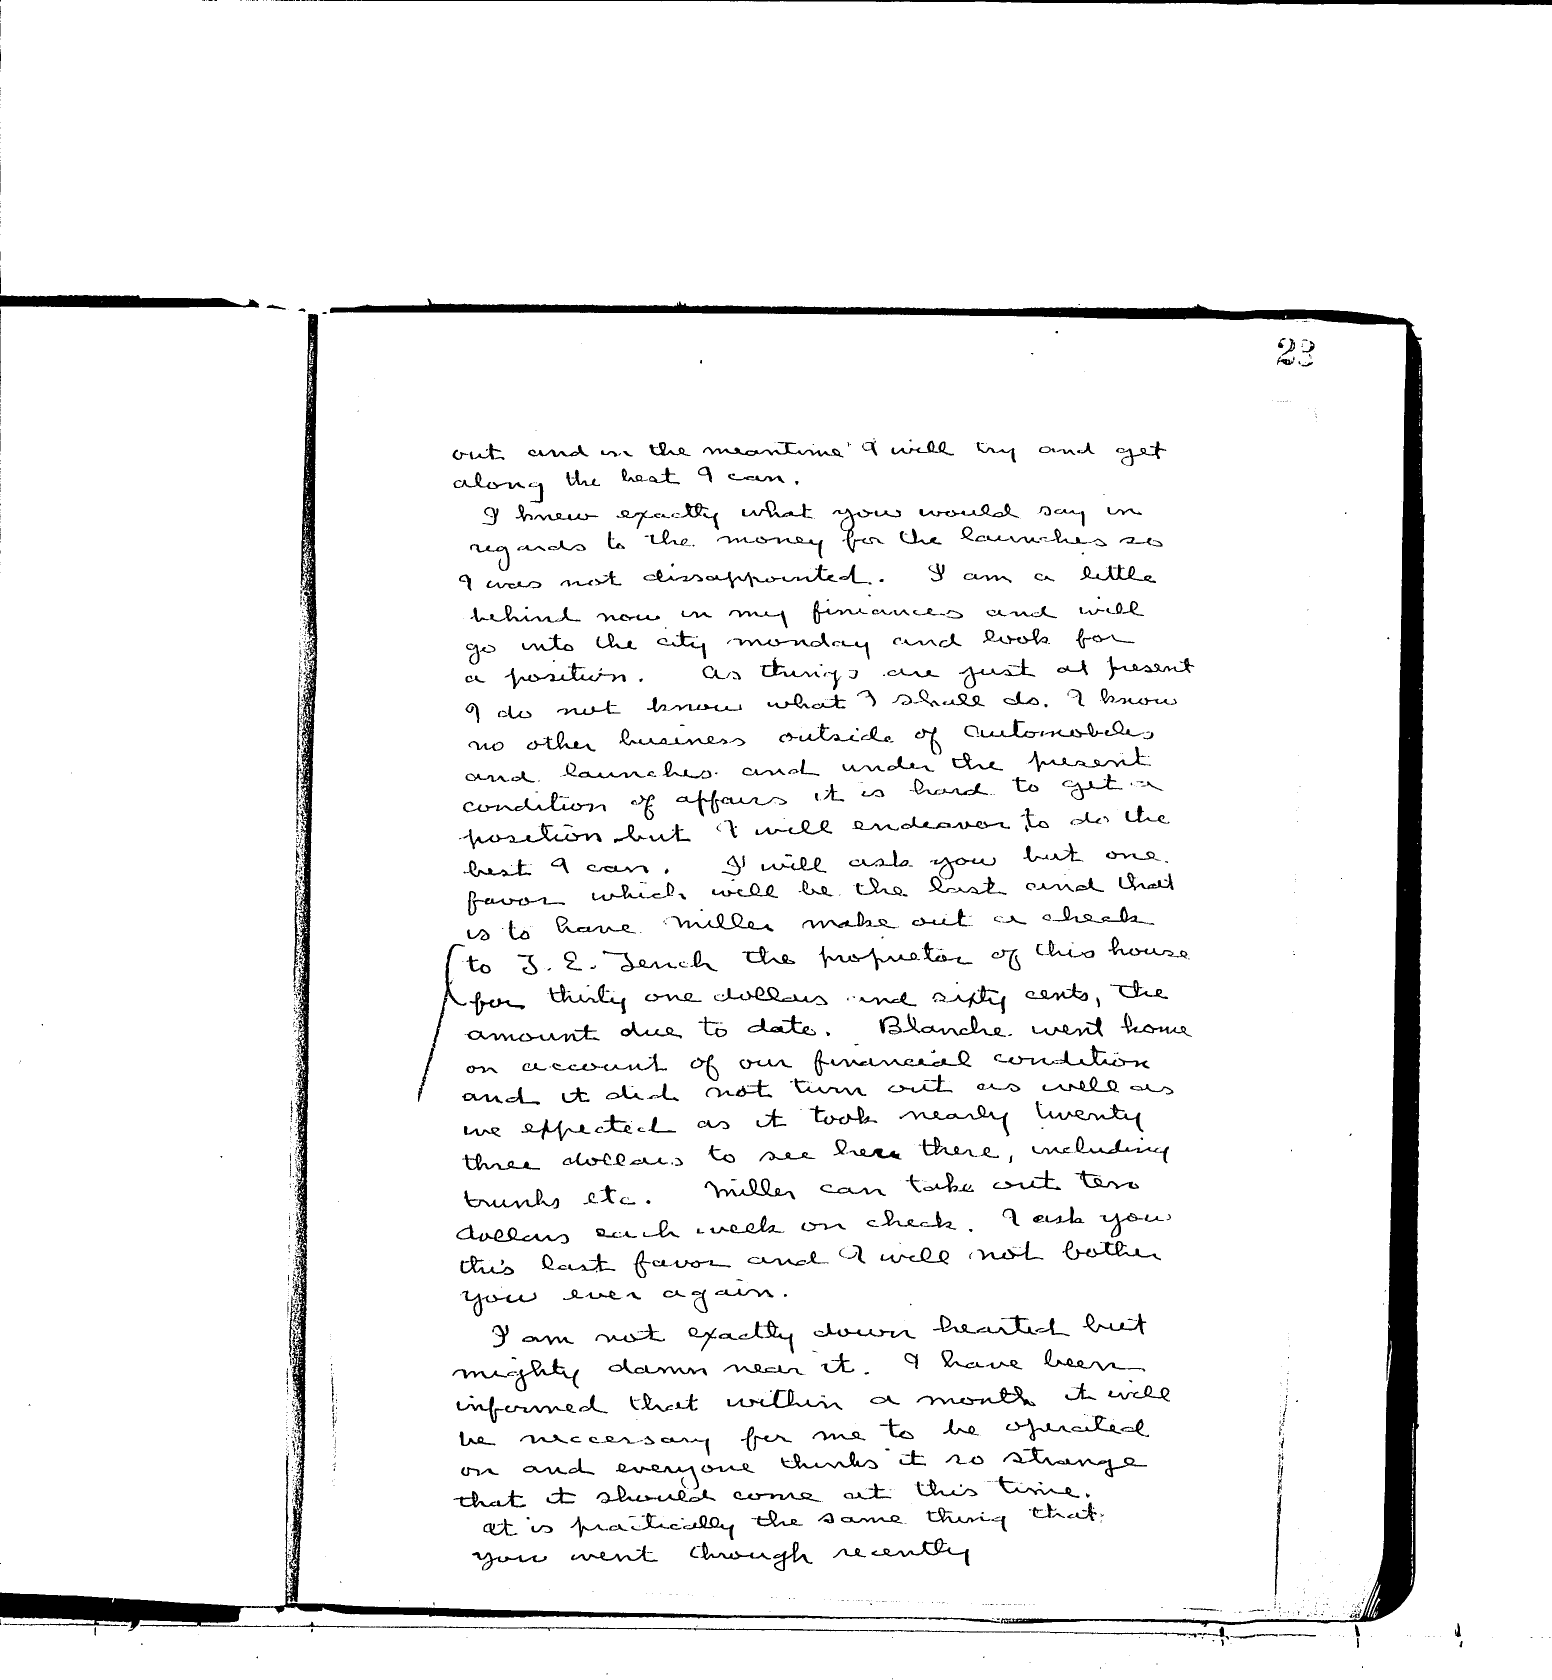 23
out and in the meantime I will try and get
along the best I can.
I knew exactly what you would say in
regards to the money for the launches so
I was not dissappointed. I am a little
behind now in my finiances and will
go into the city monday and look for
a position. As things are just at present
I do not know what I shall do. I know
no other business outside of automobiles
and launches and under the present
condition of affairs it is hard to get a
position but I will endeavor to do the
best I can. I will ask you but one
favor which will be the last and that
is to have Miller make out a check
to J. E. Tench the proprietor of this house
for thirty one dollars and sixty cents, the
amount due to date. Blanche went home
on account of our financial condition
and it did not turn out as well as
we expected as it took nearly twenty
three dollars to see her there, including
trunks etc. Miller can take out ten
dollars each week on check. I ask you
this last favor and I will not bother
you ever again.
I am not exactly down hearted but
mighty damn near it. I have been
informed that within a month it will
be neccersary for me to be operated
on and everyone thinks it so strange
that it should come at this time.
It is practically the same thing that
you went through recently